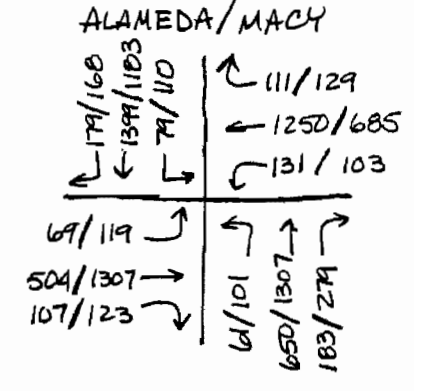 ALAMEDA/MACY
179/168
1399/1183
79/110
111/129
1250/685
131/103
69/119
504/1307
107/123
61/101
650/1307
183/279